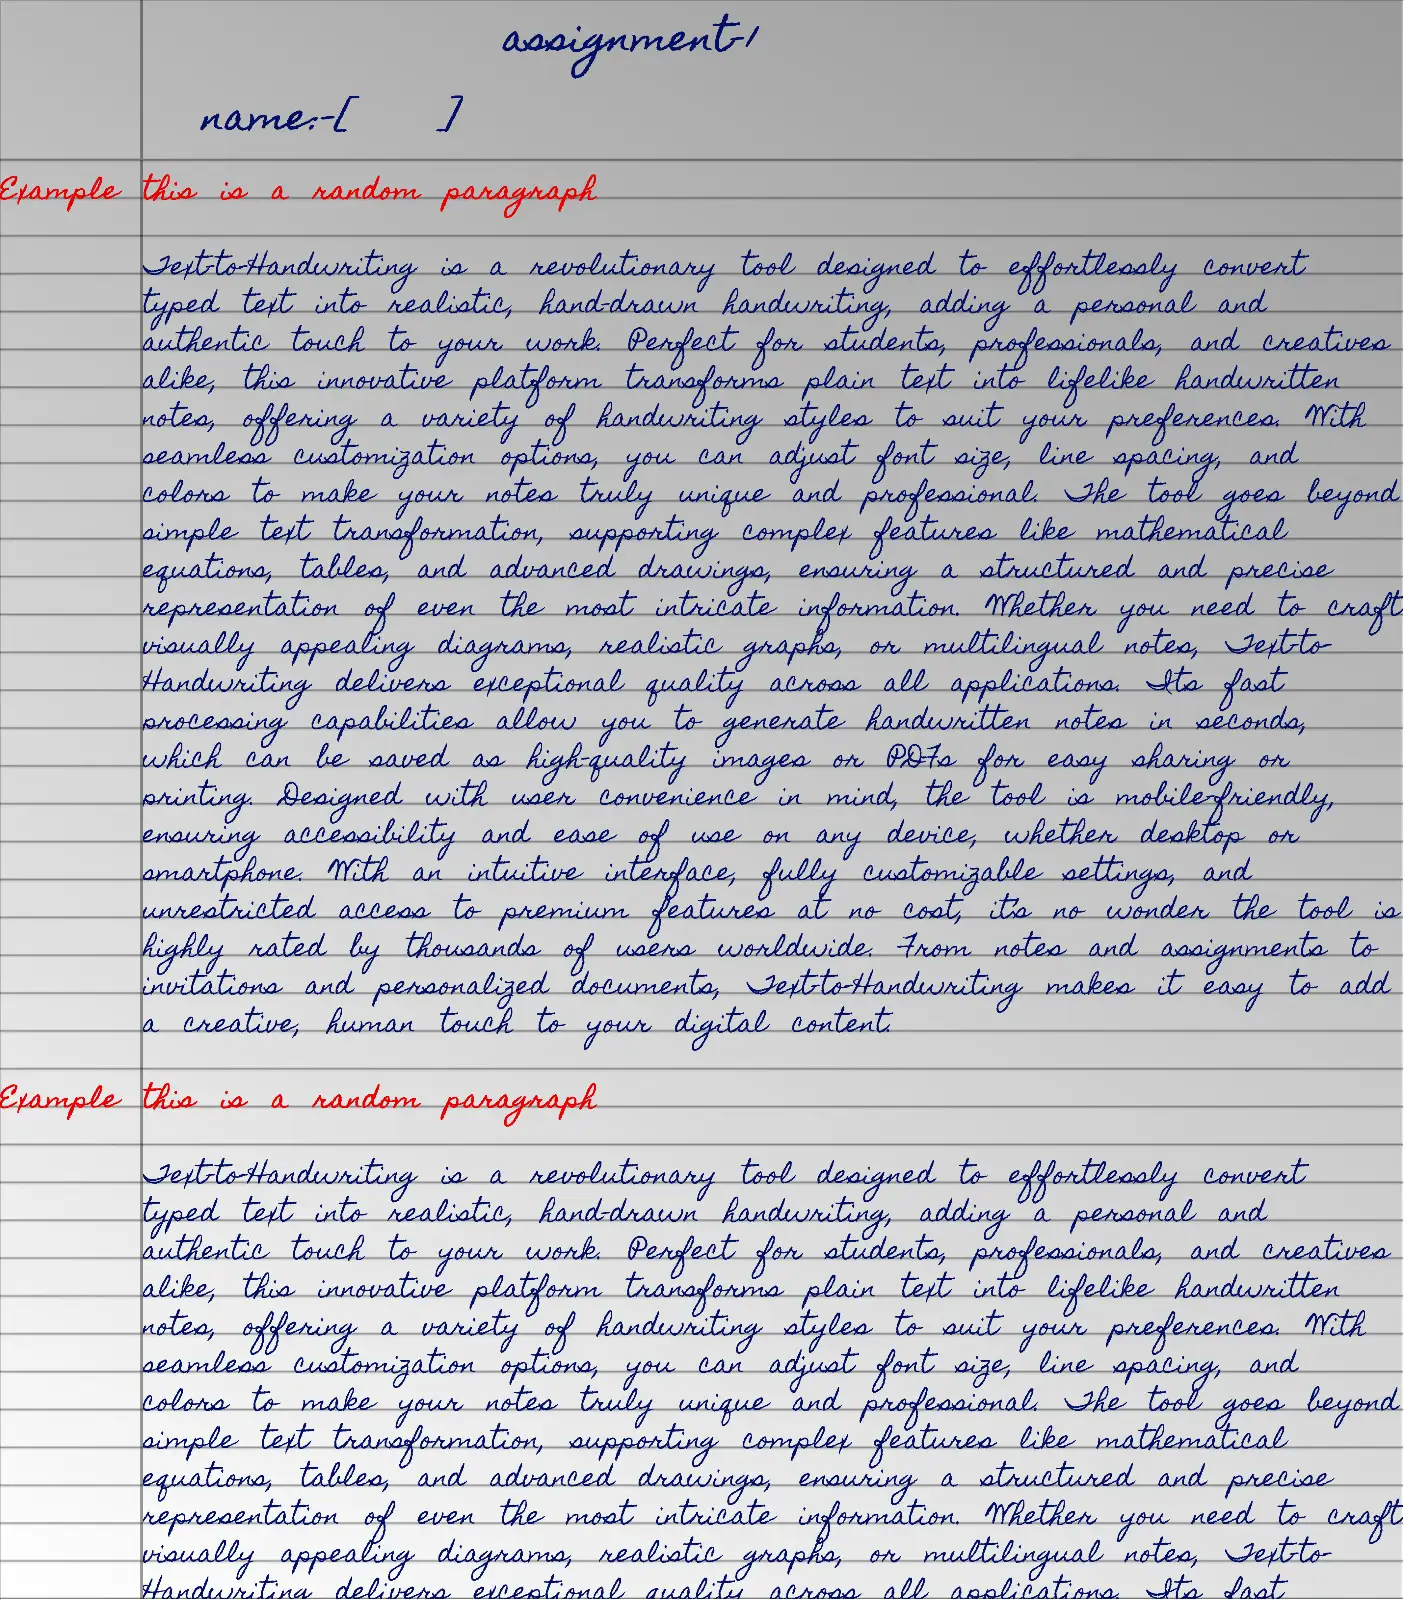 assignment-1
name:-[ ]
Example this is a random paragraph
Text-to-Handwriting is a revolutionary tool designed to effortlessly convert
typed text into realistic, hand-drawn handwriting, adding a personal and
authentic touch to your work. Perfect for students, professionals, and creatives
alike, this innovative platform transforms plain text into lifelike handwritten
notes, offering a variety of handwriting styles to suit your preferences. With
seamless customization options, you can adjust font size, line spacing, and
colors to make your notes truly unique and professional. The tool goes beyond
simple text transformation, supporting complex features like mathematical
equations, tables, and advanced drawings, ensuring a structured and precise
representation of even the most intricate information. Whether you need to craft
visually appealing diagrams, realistic graphs, or multilingual notes, Text-to-
Handwriting delivers exceptional quality across all applications. Its fast
processing capabilities allow you to generate handwritten notes in seconds,
which can be saved as high-quality images or PDFs for easy sharing or
printing. Designed with user convenience in mind, the tool is mobile-friendly,
ensuring accessibility and ease of use on any device, whether desktop or
smartphone. With an intuitive interface, fully customizable settings, and
unrestricted access to premium features at no cost, it's no wonder the tool is
highly rated by thousands of users worldwide. From notes and assignments to
invitations and personalized documents, Text-to-Handwriting makes it easy to add
a creative, human touch to your digital content.
Example this is a random paragraph
Text-to-Handwriting is a revolutionary tool designed to effortlessly convert
typed text into realistic, hand-drawn handwriting, adding a personal and
authentic touch to your work. Perfect for students, professionals, and creatives
alike, this innovative platform transforms plain text into lifelike handwritten
notes, offering a variety of handwriting styles to suit your preferences. With
seamless customization options, you can adjust font size, line spacing, and
colors to make your notes truly unique and professional. The tool goes beyond
simple text transformation, supporting complex features like mathematical
equations, tables, and advanced drawings, ensuring a structured and precise
representation of even the most intricate information. Whether you need to craft
visually appealing diagrams, realistic graphs, or multilingual notes, Text-to-
Handwriting delivers exceptional quality across all applications. Its fast